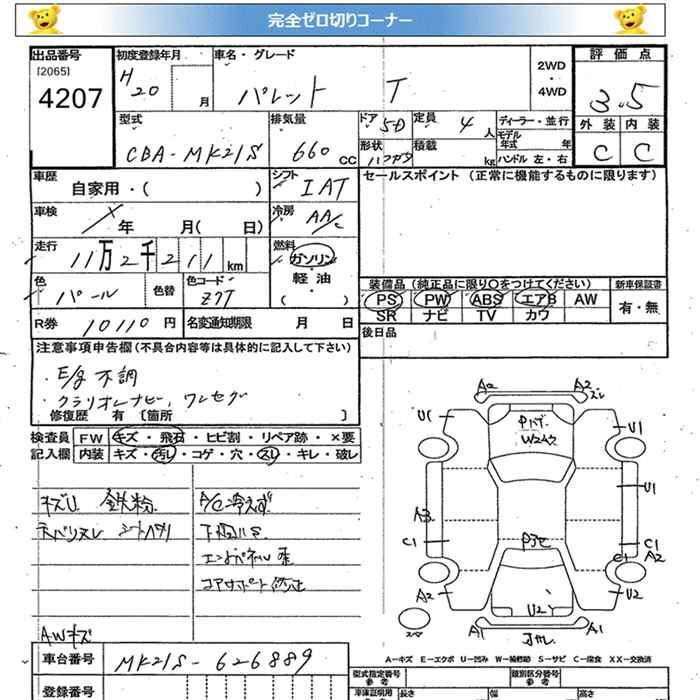 完全ゼロ切りコーナー
出品番号 初度登録年月 車名・グレード 評価点
[2065]
4207
H 20 月 パレット T 2WD ・ 4WD 3.5
型式 排気量 ドア 5D 定員 4人 ディーラー・並行 外装 内装
CBA-MK21S 660cc 形状 積載 kg モデル年式 年 ハンドル 左・右 C C
車歴 自家用・( ) シフト IAT セールスポイント (正常に機能するものに限ります)
車検 年 月( 日) 冷房 AA/c
走行 11万2千211km 燃料 ガソリン・軽油・( )
色 パール 色替 色コード Z7T 装備品(純正品に限り○をつけてください) 新車保証書
PS PW ABS エアB AW 有・無
SR ナビ TV カワ
R券 10110円 名変通知期限 月 日 後日品
注意事項申告欄(不具合内容等は具体的に記入して下さい)
・E/g 不調
・クラリオンナビー, ワンセグ
修復歴 有 〔箇所 〕
検査員 FW キズ・飛石・ヒビ割・リペア跡・×要
記入欄 内装 キズ・汚レ・コゲ・穴・スレ・キレ・破レ
キズU 鉄粉 A/C冷えず
下廻りS
コアサポート
AWキズ
A2 A2 ズレ
U1 U1
Pバゲ
W2
U1
A3
C1 C1
C1 A2
A2 U2
U2
スペア A1 A1
車台番号 MK21S-626889
A-キズ E-エクボ U-凹み W-補修跡 S-サビ C-腐食 XX-交換済
登録番号 型式指定番号 類別区分番号
車庫証明用 長さ 幅 高さ